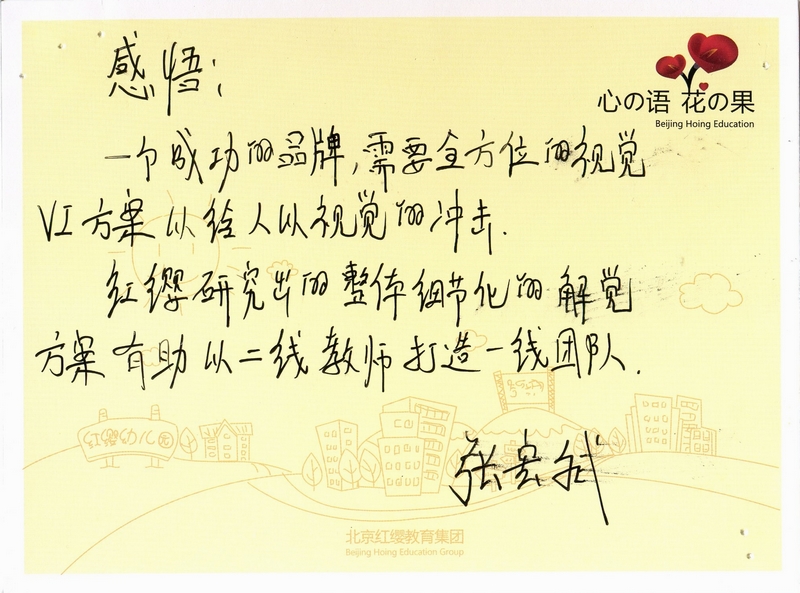 心の语 花の果
Beijing Hoing Education
感悟：
一个成功的品牌,需要全方位的视觉
VI方案以给人以视觉的冲击.
红缨研究出的整体细节化的解觉
方案有助以二线教师打造一线团队.
红缨幼儿园
张宏斌
北京红缨教育集团
Beijing Hoing Education Group